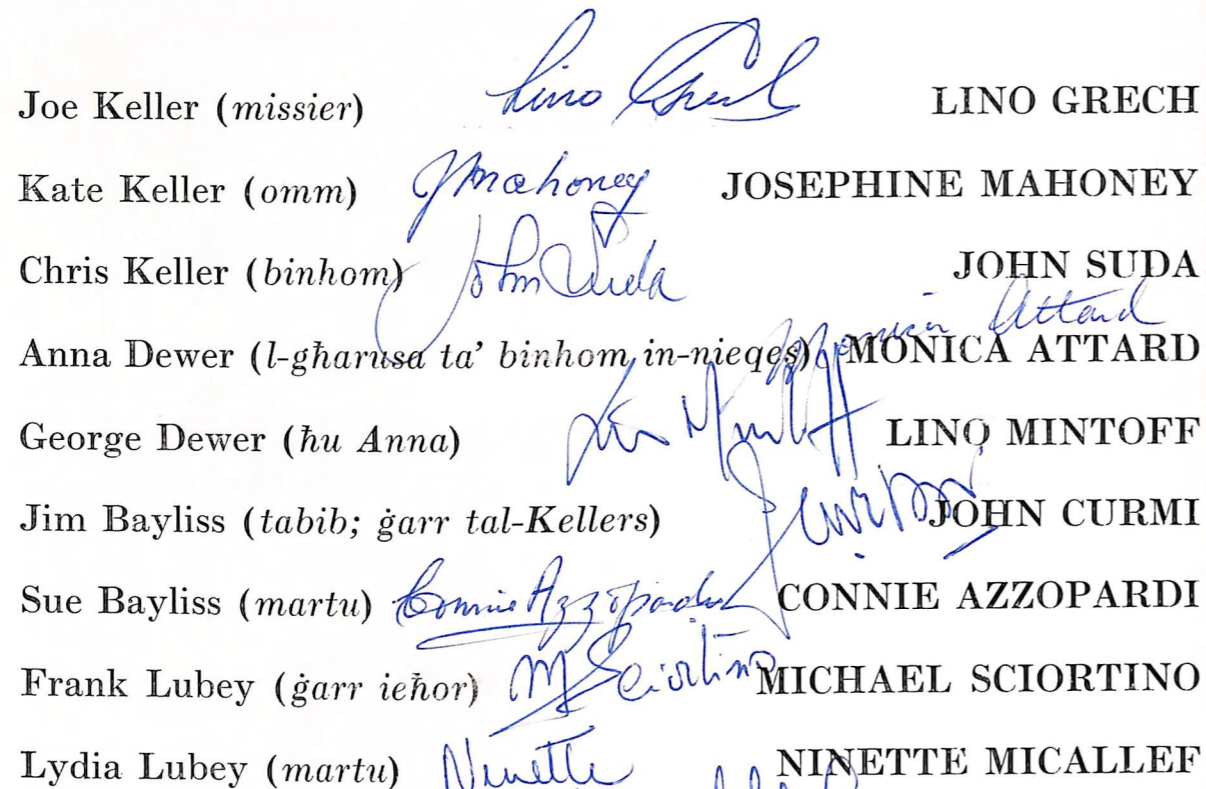 Joe Keller (missier) Lino Grech LINO GRECH
Kate Keller (omm) JMahoney JOSEPHINE MAHONEY
Chris Keller (binhom) John Suda JOHN SUDA
Anna Dewer (l-għarusa ta' binhom in-nieqes) Monica Attard MONICA ATTARD
George Dewer (ħu Anna) Lino Mintoff LINO MINTOFF
Jim Bayliss (tabib; ġarr tal-Kellers) JOHN CURMI
Sue Bayliss (martu) Connie Azzopardi CONNIE AZZOPARDI
Frank Lubey (ġarr ieħor) M Sciortino MICHAEL SCIORTINO
Lydia Lubey (martu) Ninette NINETTE MICALLEF